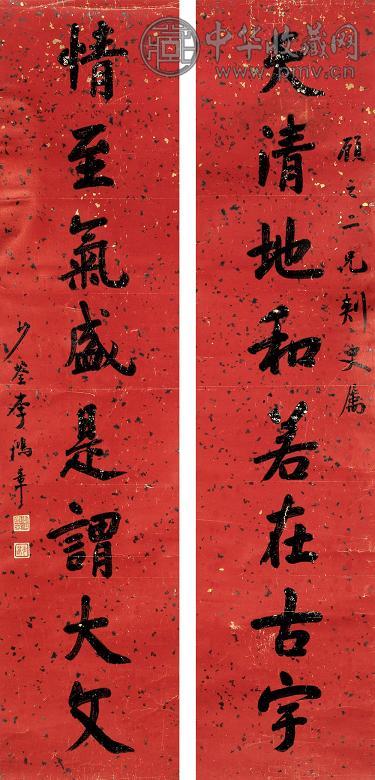 中华收藏网
www.pmv.cn
之二兄刺史屬
天清地和若在古宇
情至氣盛是謂大文
少荃李鴻章